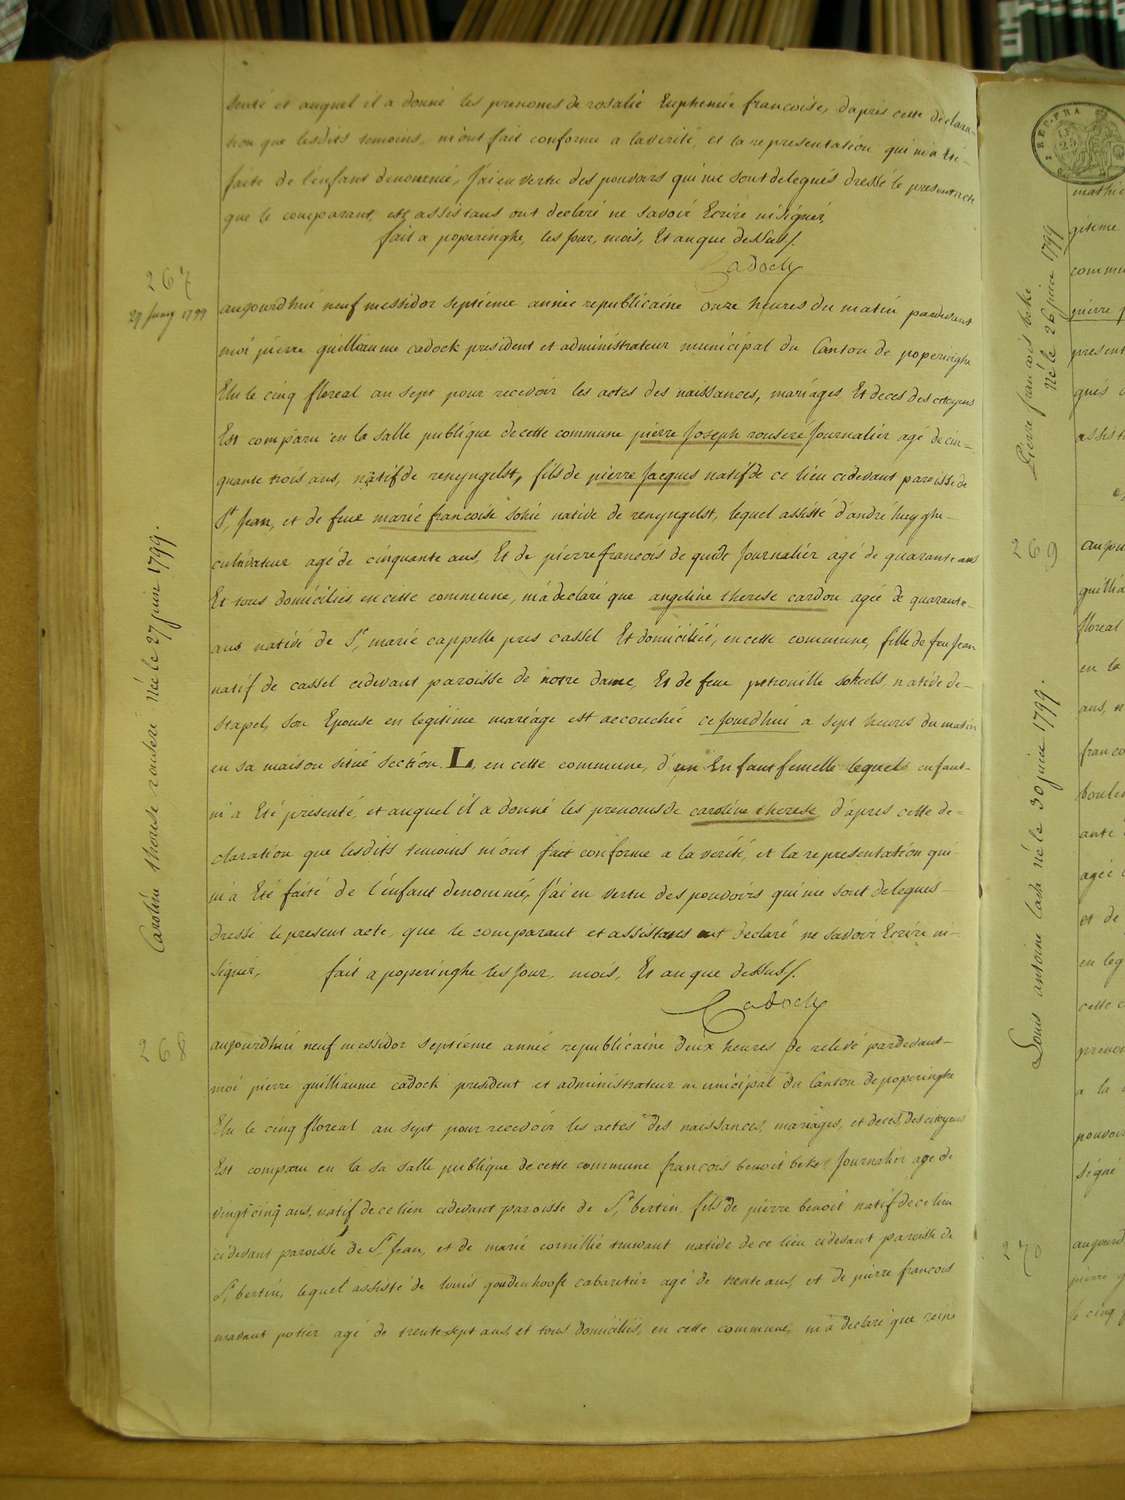 senté et auquel il a donné les prenoms de rosalie Euphemie francoise, d'après cette déclara-
tion que lesdits temoins, m'ont fait conforme a la verité, et la representation qui m'a Eté-
faite de l'enfant denommé, J'ai en vertu des pouvoirs qui me sont delegués dressé le present acte
que le comparant, et assistans ont declaré ne savoir Ecrire ni signer,
fait a poperinghe, les Jour, mois, Et an que dessus/.
Cadock
267
27 juny 1799
aujourdhui neuf messidor septième année republicaine onze heures du matin pardevant
moi pierre guilliaume cadock president et administrateur municipal du Canton de poperinghe
Elu le cinq floreal an sept pour recevoir les actes des naissances, mariages Et deces des citoyens
Est comparu en la salle publique de cette commune pierre Joseph rouseré Journalier agé de cin-
quante trois ans, natif de renyngelst, fils de pierre Jacques natif de ce lieu cidevant paroisse de
St Jean, et de feue marie francoise sohié native de renyngelst, lequel assisté d'andré huyghe-
cultivateur agé de cinquante ans, Et de pierre francois de quidt Journalier agé de quarante ans
Et tous domiciliés en cette commune, m'a declaré que angeline therese cardon agée de quarante-
ans native de Ste marie cappelle pres cassel Et domiciliée, en cette commune, fille de feu Jean
natif de cassel cidevant paroisse de notre dame, Et de feue petronille sokeel, native de-
stapel, son Epouse en legitime mariage est accouchée ce Jourdhui a sept heures du matin
en sa maison situé section L, en cette commune, d'un Enfant femelle lequel enfant-
m'a Eté presenté, et auquel il a donné les prenoms de caroline therese, d'après cette de-
claration que lesdits temoins m'ont fait conforme a la verité, et la representation qui
m'a Eté faite de l'enfant denommé, J'ai en vertu des pouvoirs qui me sont delegués-
dressé le present acte, que le comparant et assistans ont declaré ne savoir Ecrire ni-
signer, fait a poperinghe les Jour, mois, Et an que dessus/.
Cadock
Caroline therese rouseré Née le 27 juin 1799.
268
aujourdhui neuf messidor septième année republicaine deux heures de relevé pardevant-
moi pierre guilliaume cadock president et administrateur municipal du Canton de poperinghe
Elu le cinq floreal an sept pour recevoir les actes des naissances, mariages, et deces, des citoyens
Est comparu en la sa salle publique de cette commune francois benoit beke Journalier agé de
vingt cinq ans, natif de ce lieu cidevant paroisse de St bertin, fils de pierre benoit natif de ce lieu
cidevant paroisse de St Jean, et de marie cornillie truwant native de ce lieu cidevant paroisse de
St bertin, lequel assisté de louis goudenhooft cabaretier agé de trente ans, et de pierre francois
mavaut potier agé de trente sept ans, et tous domiciliés, en cette commune, m'a declaré que reine
REP. FRA
25
Pierre francois beke
Né le 26 juin 1799
gitime
commu
pierre
present
qués
assist
269
aujou
guillia
floreal
en la
ans, n
franco
boulen
ante
agée
et de
en leg
cette c
prenom
a la
pouvoir
signé
Louis antoine cash né le 30 juin 1799.
270
aujourd
pierre g
le cinq f